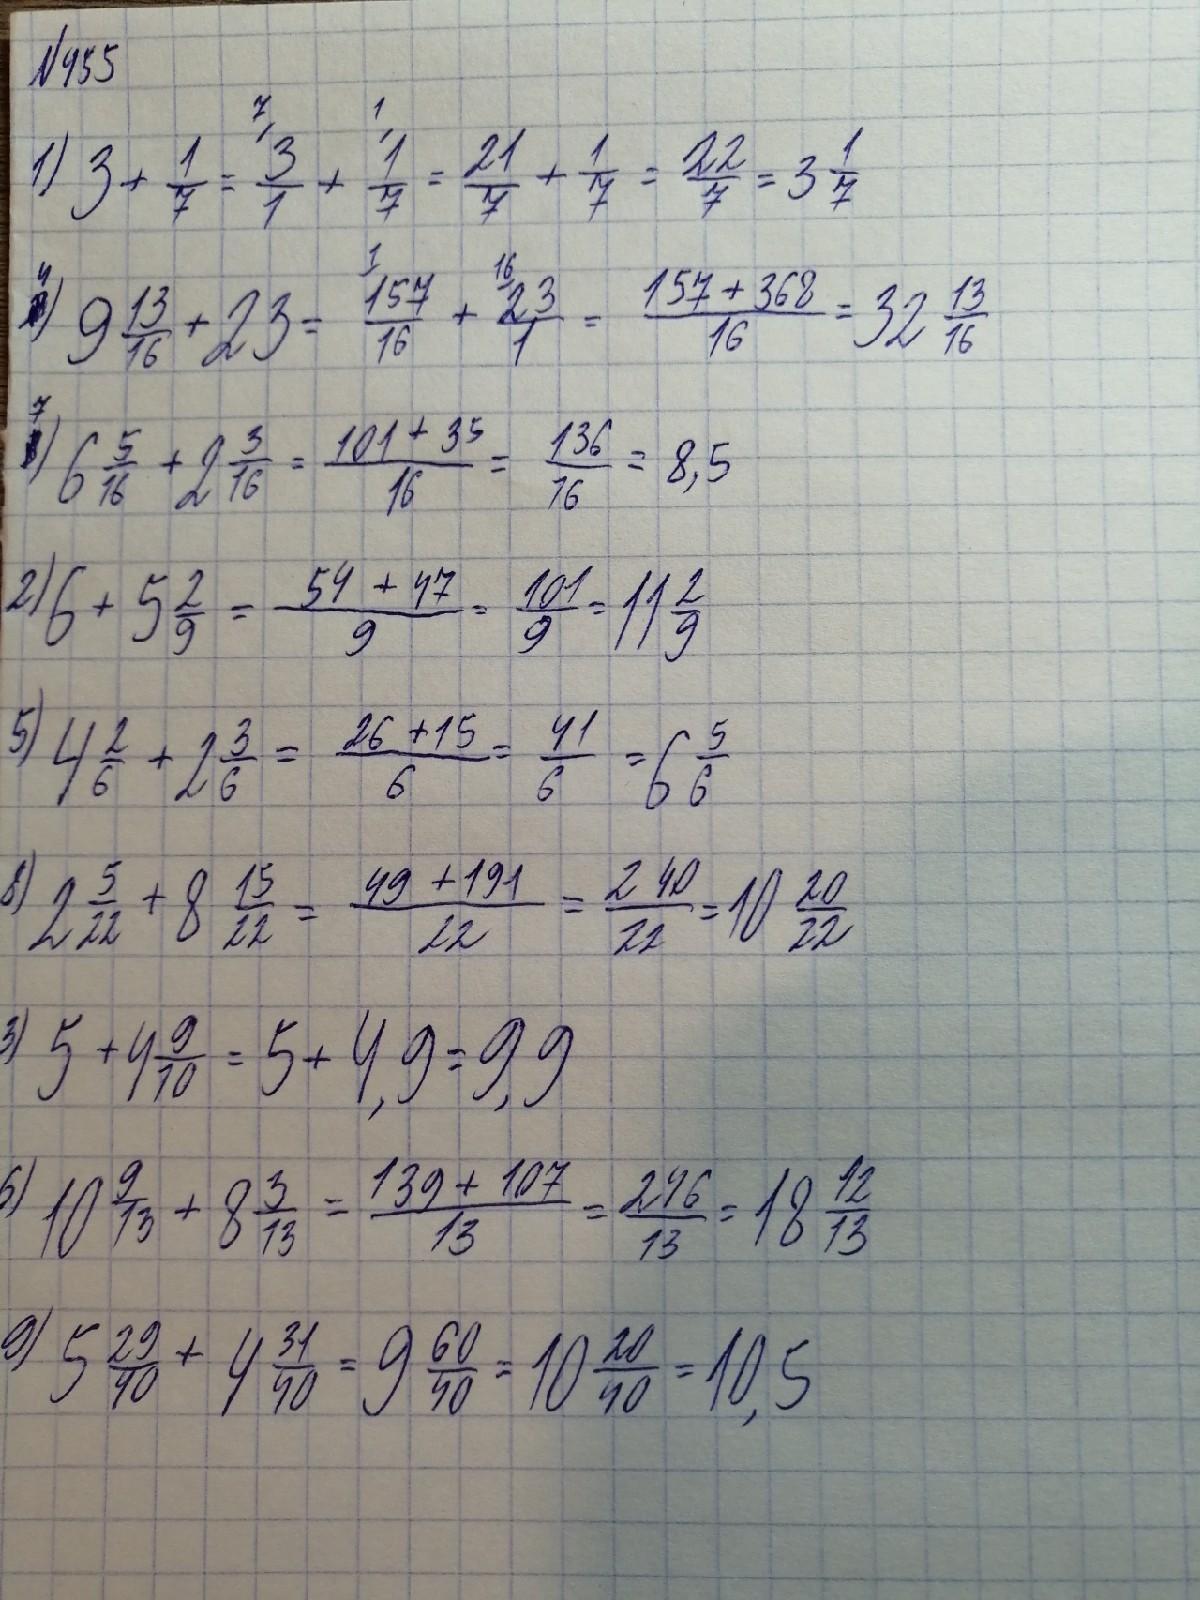 №455
1) 3 + 1/7 = 3/1 (7) + 1/7 (1) = 21/7 + 1/7 = 22/7 = 3 1/7
4) 9 13/16 + 23 = 157/16 (1) + 23/1 (16) = (157 + 368)/16 = 32 13/16
7) 6 5/16 + 2 3/16 = (101 + 35)/16 = 136/16 = 8,5
2) 6 + 5 2/9 = (54 + 47)/9 = 101/9 = 11 2/9
5) 4 2/6 + 2 3/6 = (26 + 15)/6 = 41/6 = 6 5/6
8) 2 5/22 + 8 15/22 = (49 + 191)/22 = 240/22 = 10 20/22
3) 5 + 4 9/10 = 5 + 4,9 = 9,9
6) 10 9/13 + 8 3/13 = (139 + 107)/13 = 246/13 = 18 12/13
9) 5 29/40 + 4 31/40 = 9 60/40 = 10 20/40 = 10,5